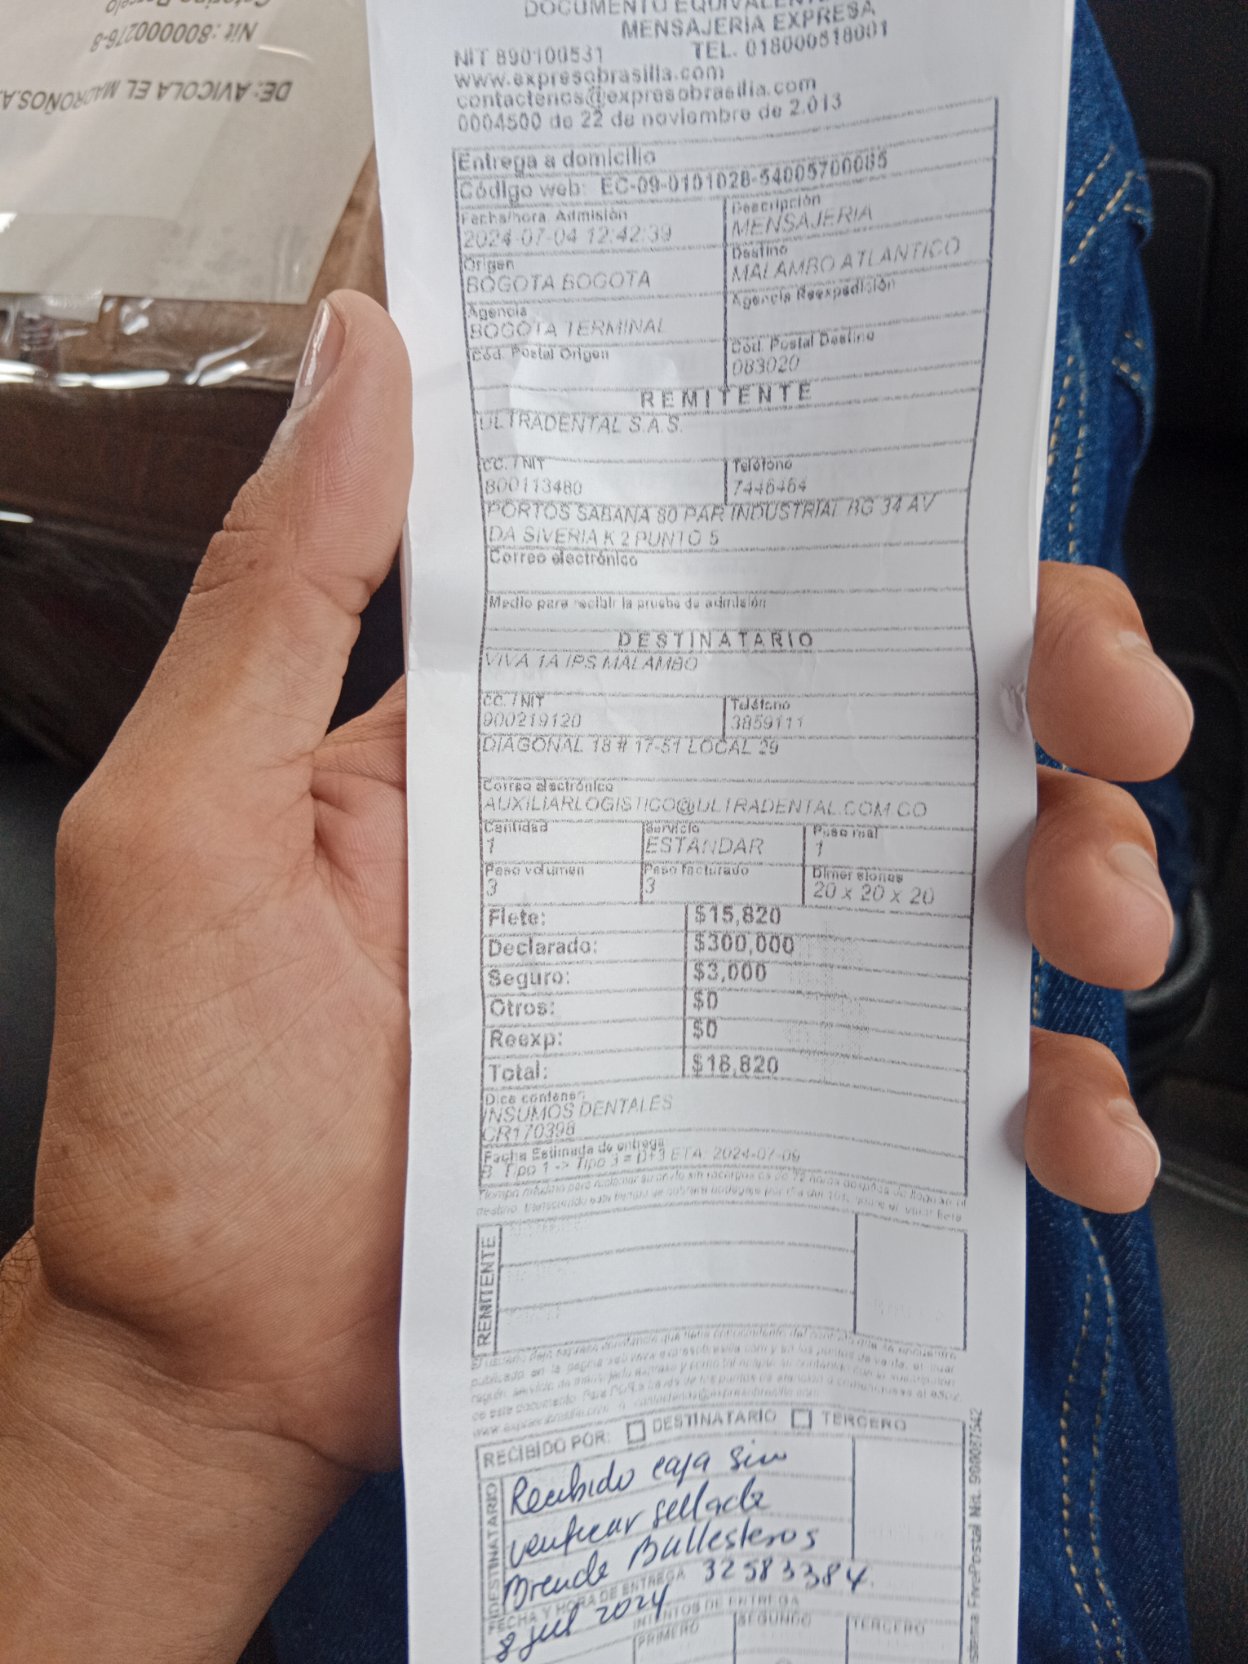 DE: AVICOLA EL MADROÑO S.A
Nit : 800000276-8
DOCUMENTO EQUIVALENTE
MENSAJERIA EXPRESA
NIT 890100531 TEL. 018000518001
www.expresobrasilia.com
contactenos@expresobrasilia.com
0004500 de 22 de noviembre de 2.013
Entrega a domicilio
Código web: EC-09-0101028-54005700085
Fecha/hora Admisión
2024-07-04 12:42:39
Descripción
MENSAJERIA
Origen
BOGOTA BOGOTA
Destino
MALAMBO ATLANTICO
Agencia
BOGOTA TERMINAL
Agencia Reexpedición
Cód. Postal Origen
Cód. Postal Destino
083020
REMITENTE
ULTRADENTAL S.A.S.
CC. / NIT
800113480
Teléfono
7446464
PORTOS SABANA 80 PAR INDUSTRIAL BG 34 AV
DA SIVERIA K 2 PUNTO 5
Correo electrónico
Medio para recibir la prueba de admisión
DESTINATARIO
VIVA 1A IPS MALAMBO
CC. / NIT
900219120
Teléfono
3859111
DIAGONAL 18 # 17-51 LOCAL 29
Correo electrónico
AUXILIARLOGISTICO@ULTRADENTAL.COM.CO
Cantidad
1
Servicio
ESTANDAR
Peso real
1
Peso volumen
3
Peso facturado
3
Dimensiones
20 x 20 x 20
Flete: $15,820
Declarado: $300,000
Seguro: $3,000
Otros: $0
Reexp: $0
Total: $18,820
Dice contener
INSUMOS DENTALES
CR170398
Fecha Estimada de entrega
Tipo 1 -> Tipo 3 = D+3 ETA: 2024-07-09
REMITENTE
RECIBIDO POR: DESTINATARIO TERCERO
DESTINATARIO
Recibido caja sin
verificar sellada
Brenda Ballesteros
32583384
FECHA Y HORA DE ENTREGA
8 jul 2024
INTENTOS DE ENTREGA
PRIMERO SEGUNDO TERCERO